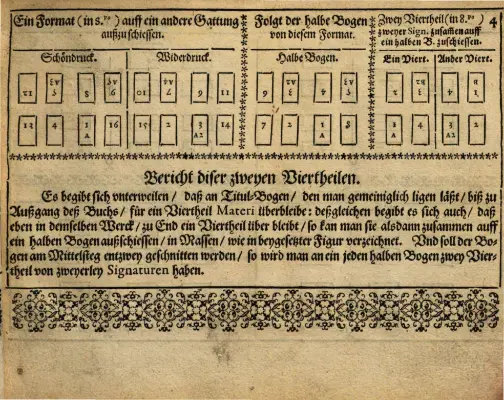 Ein Format (in 8.vo) auff ein andere Gattung
außzuschiessen.
Schöndruck. Widerdruck.
13 4 1 16 15 2 3 14
A A2
Folgt der halbe Bogen
von diesem Format.
Halbe Bogen.
7 2 1 8
A
Zwey Viertheil (in 8.vo) 4
zweyer Sign. zusamen auff
ein halben B. zuschiessen.
Ein Viert. Ander Viert.
Bericht diser zweyen Viertheilen.
Es begibt sich unterweilen / daß an Titul-Bogen / den man gemeiniglich ligen läßt / biß zu
Außgang deß Buchs / für ein Viertheil Materi überbleibe: deßgleichen begibt es sich auch / daß
eben in demselben Werck / zu End ein Viertheil über bleibt / so kan man sie alsdann zusammen auff
ein halben Bogen außschiessen / in Massen / wie in beygesetzer Figur verzeichnet. Und soll der Bo-
gen am Mittelsteg entzwey geschnitten werden / so wird man an ein jeden halben Bogen zwey Vier-
theil von zweyerley Signaturen haben.